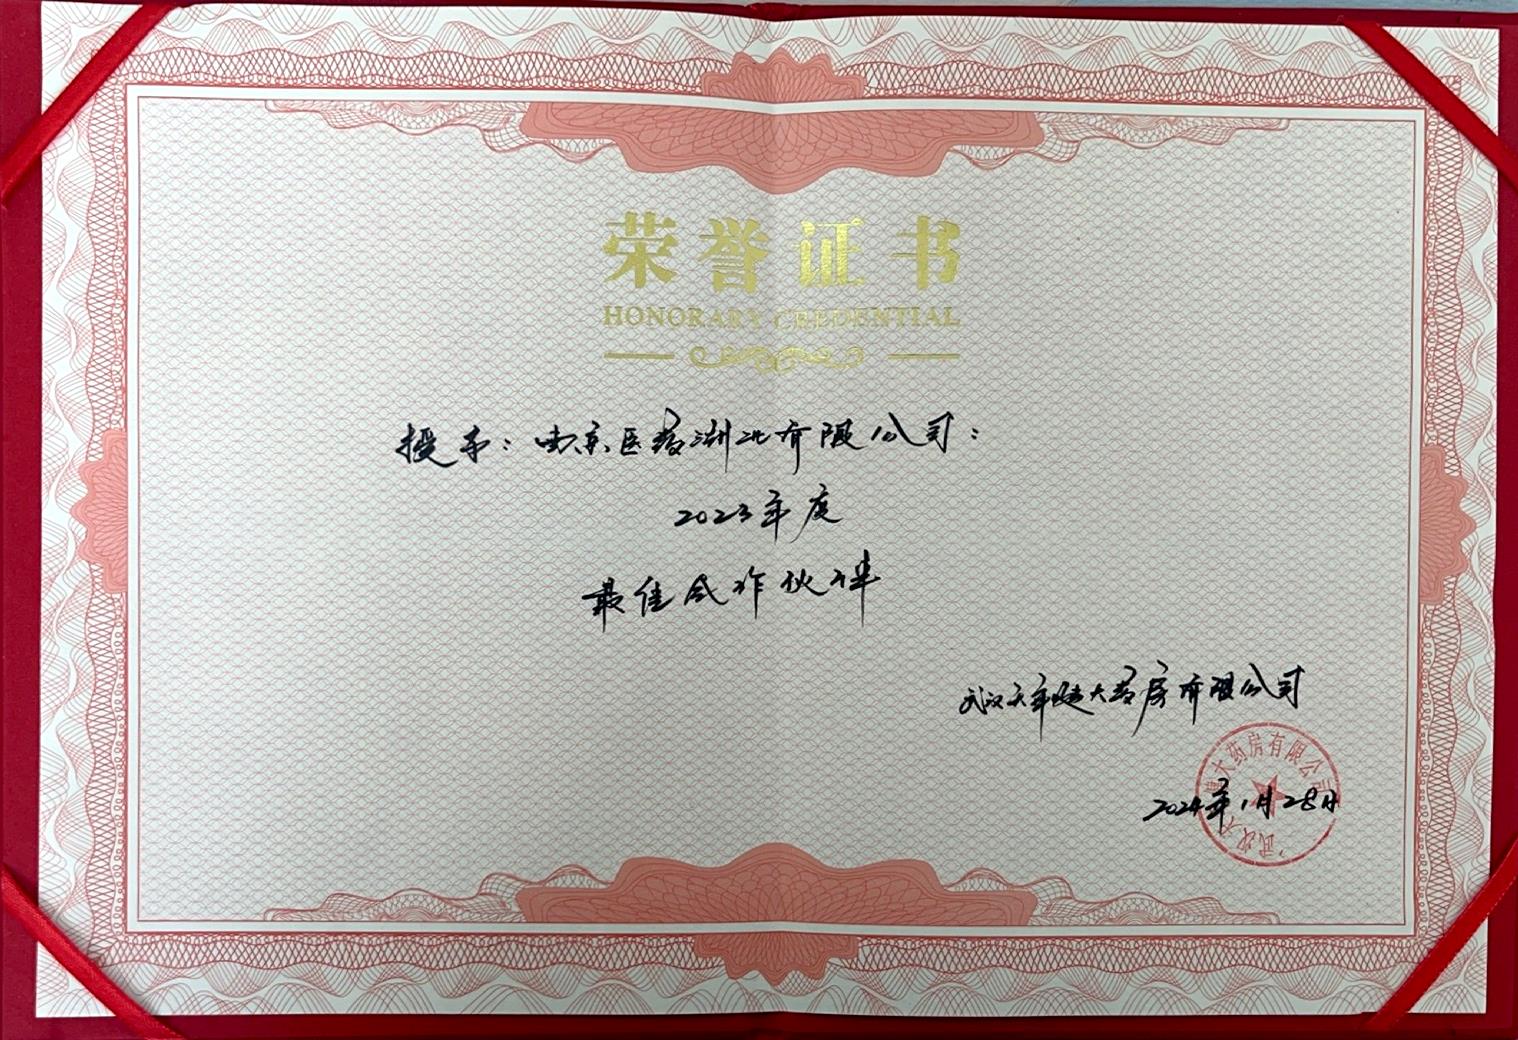 荣誉证书
HONORARY CREDENTIAL
授予：西京医药湖北有限公司：
2023年度
最佳合作伙伴
武汉天年健大药房有限公司
大药房有限公司
2024年1月28日